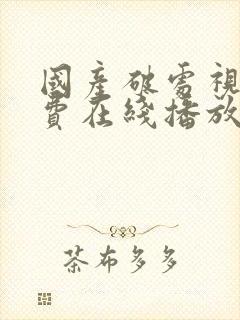 國產破處視
費在綫播放
茶布多多